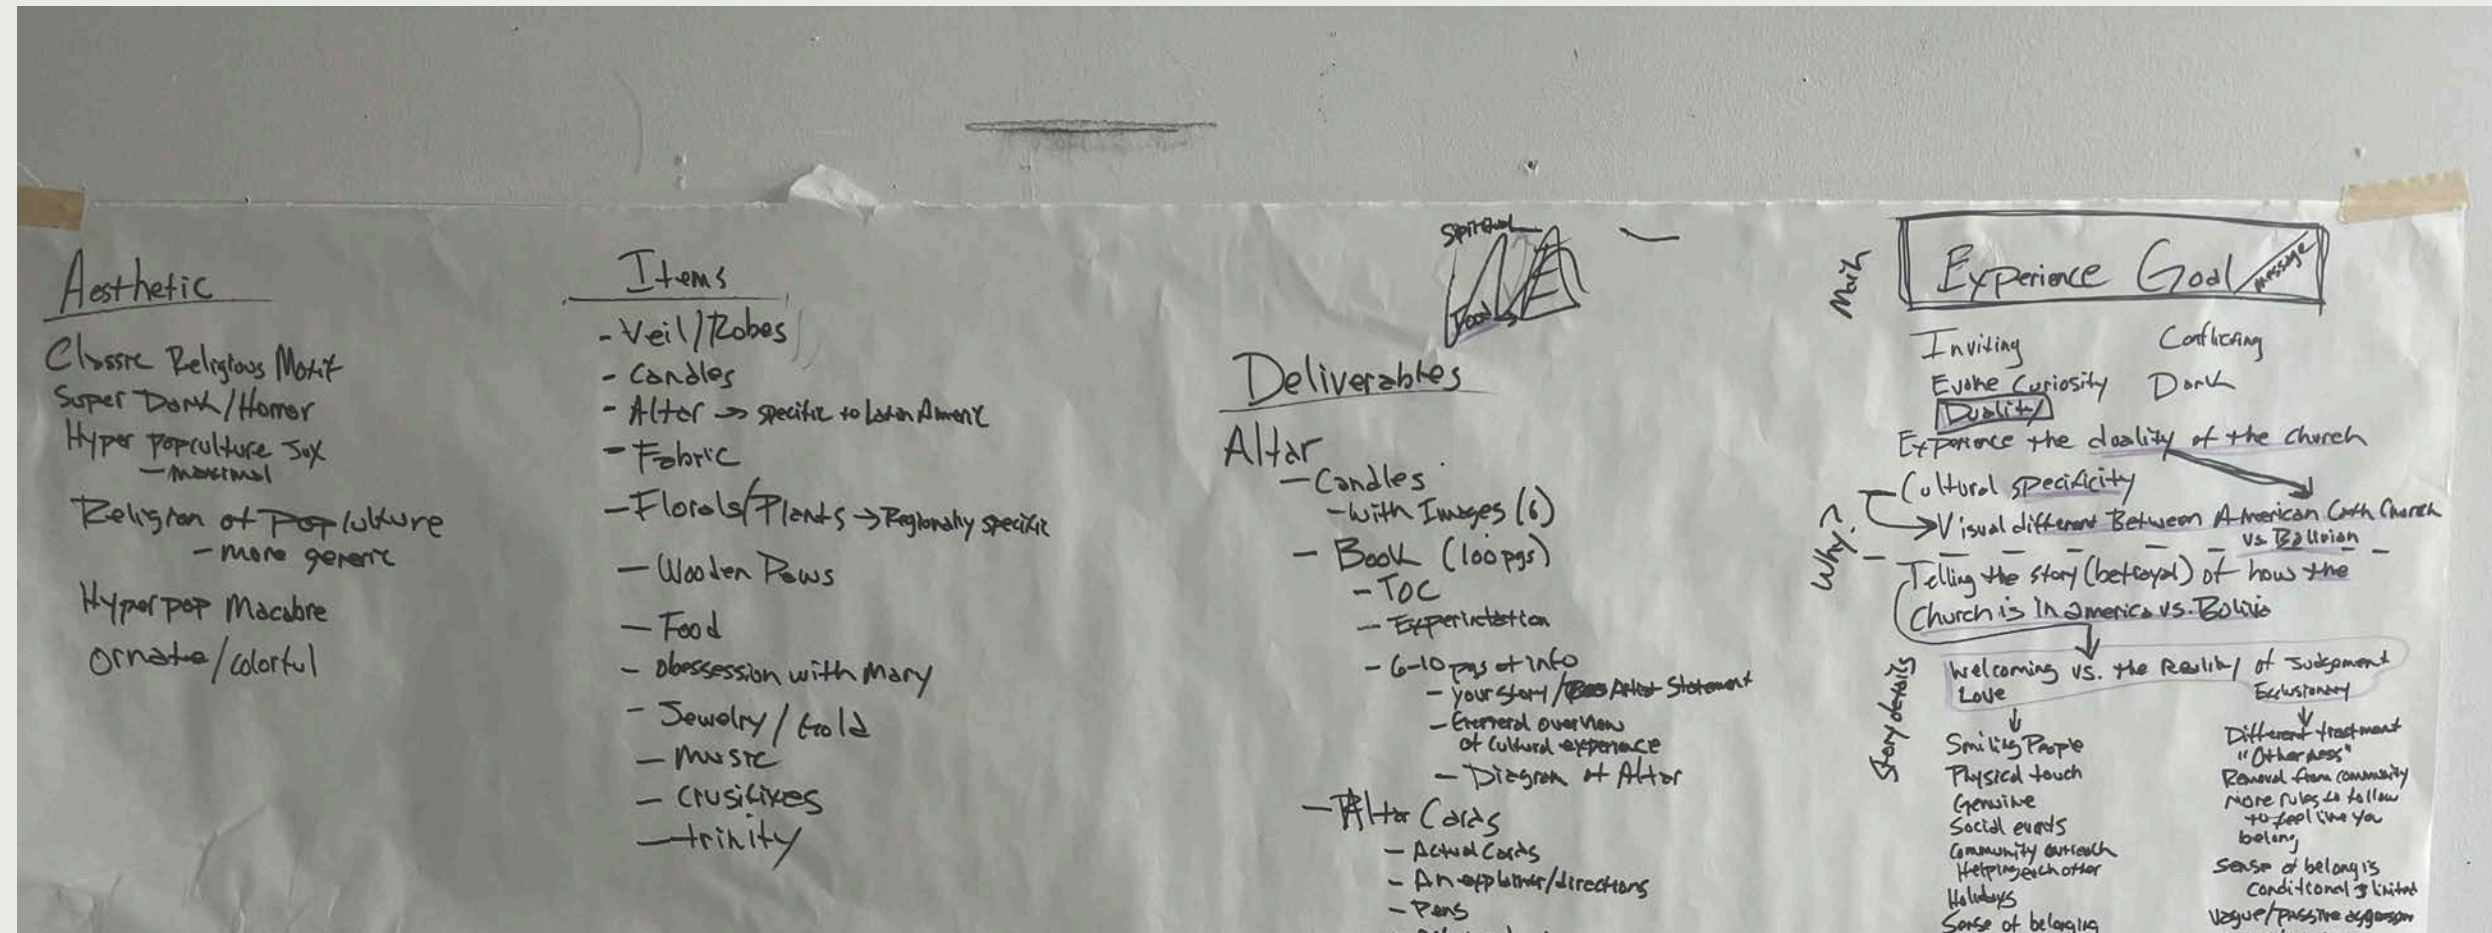 Aesthetic
Classic Religious Motif
Super Dark/Horror
Hyper popculture
- maximal
Religion of Popculture
- more generic
Hyperpop Macabre
Ornate/colorful
Items
- Veil/Robes
- Candles
- Altar → specific to Latin Americ
- Fabric
- Florals/Plants → Regionally specific
- Wooden Pews
- Food
- obessession with Mary
- Jewelry/Gold
- music
- crusifixes
- trinity
Spiritual
Deliverables
Altar
- Candles
- with Images (6)
- Book (100pgs)
- TOC
- 6-10 pgs of info
- your story/ Artist Statement
- General overview
of cultural experience
- Diagram of Altar
- Altar Cards
- Actual Cards
- An explainer/directions
- Pens
Main
Experience Goal/message
Inviting Conflicting
Evoke Curiosity Dark
Duality
Experience the duality of the church
Why?
Cultural specificity
→ Visual different Between American Cath Church
vs Bolivian
Telling the story (betrayal) of how the
Church is in america vs. Bolivia
Story details
Welcoming vs. the Reality of Judgement
Love Exclusionary
Smiling People
Physical touch
Genuine
Social events
Community outreach
Helping each other
Holidays
Sense of belonging
Different treatment
"Otherness"
Removal from community
more rules to follow
to feel like you
belong
Sense of belong is
Conditional & limited
Vague/passive